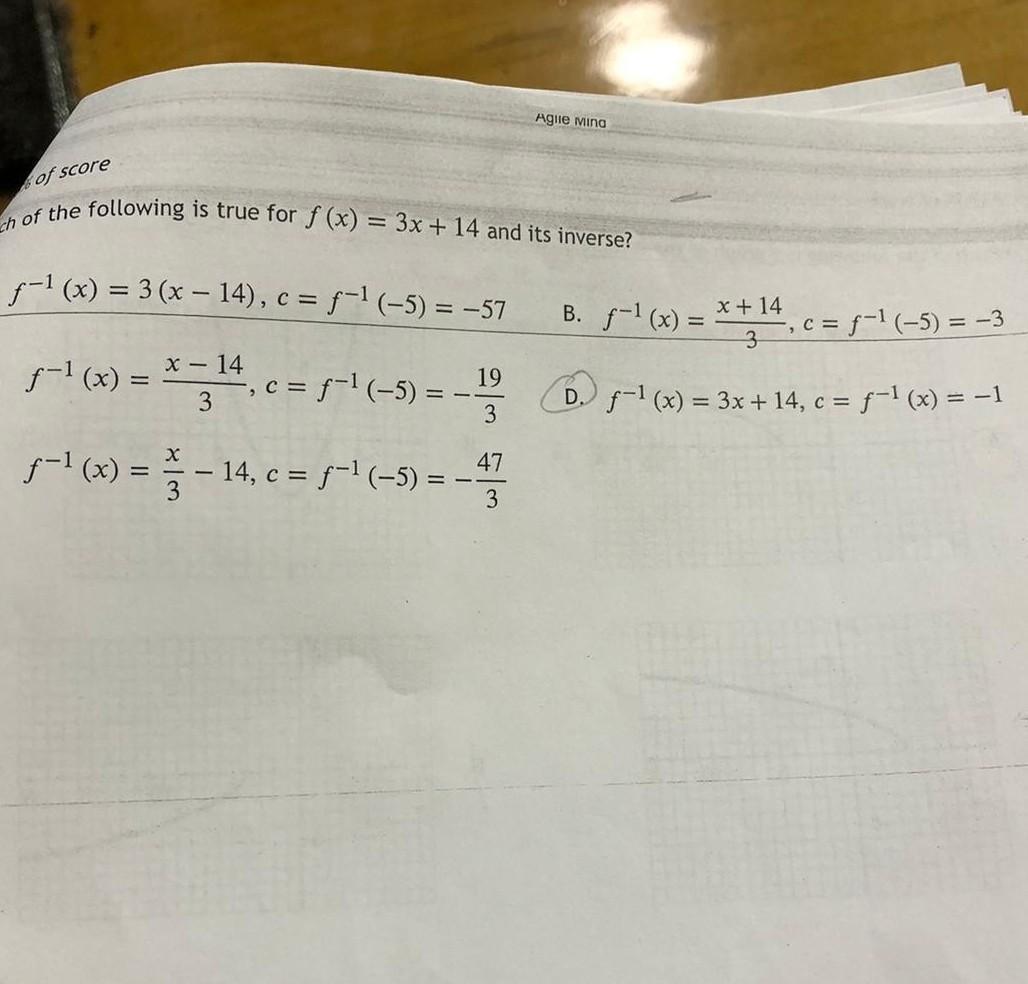 Agile Mind
% of score
ch of the following is true for f (x) = 3x + 14 and its inverse?
f⁻¹ (x) = 3 (x − 14), c = f⁻¹ (−5) = −57
B. f⁻¹ (x) = (x + 14)/3, c = f⁻¹ (−5) = −3
f⁻¹ (x) = (x − 14)/3, c = f⁻¹ (−5) = −19/3
D. f⁻¹ (x) = 3x + 14, c = f⁻¹ (x) = −1
f⁻¹ (x) = x/3 − 14, c = f⁻¹ (−5) = −47/3